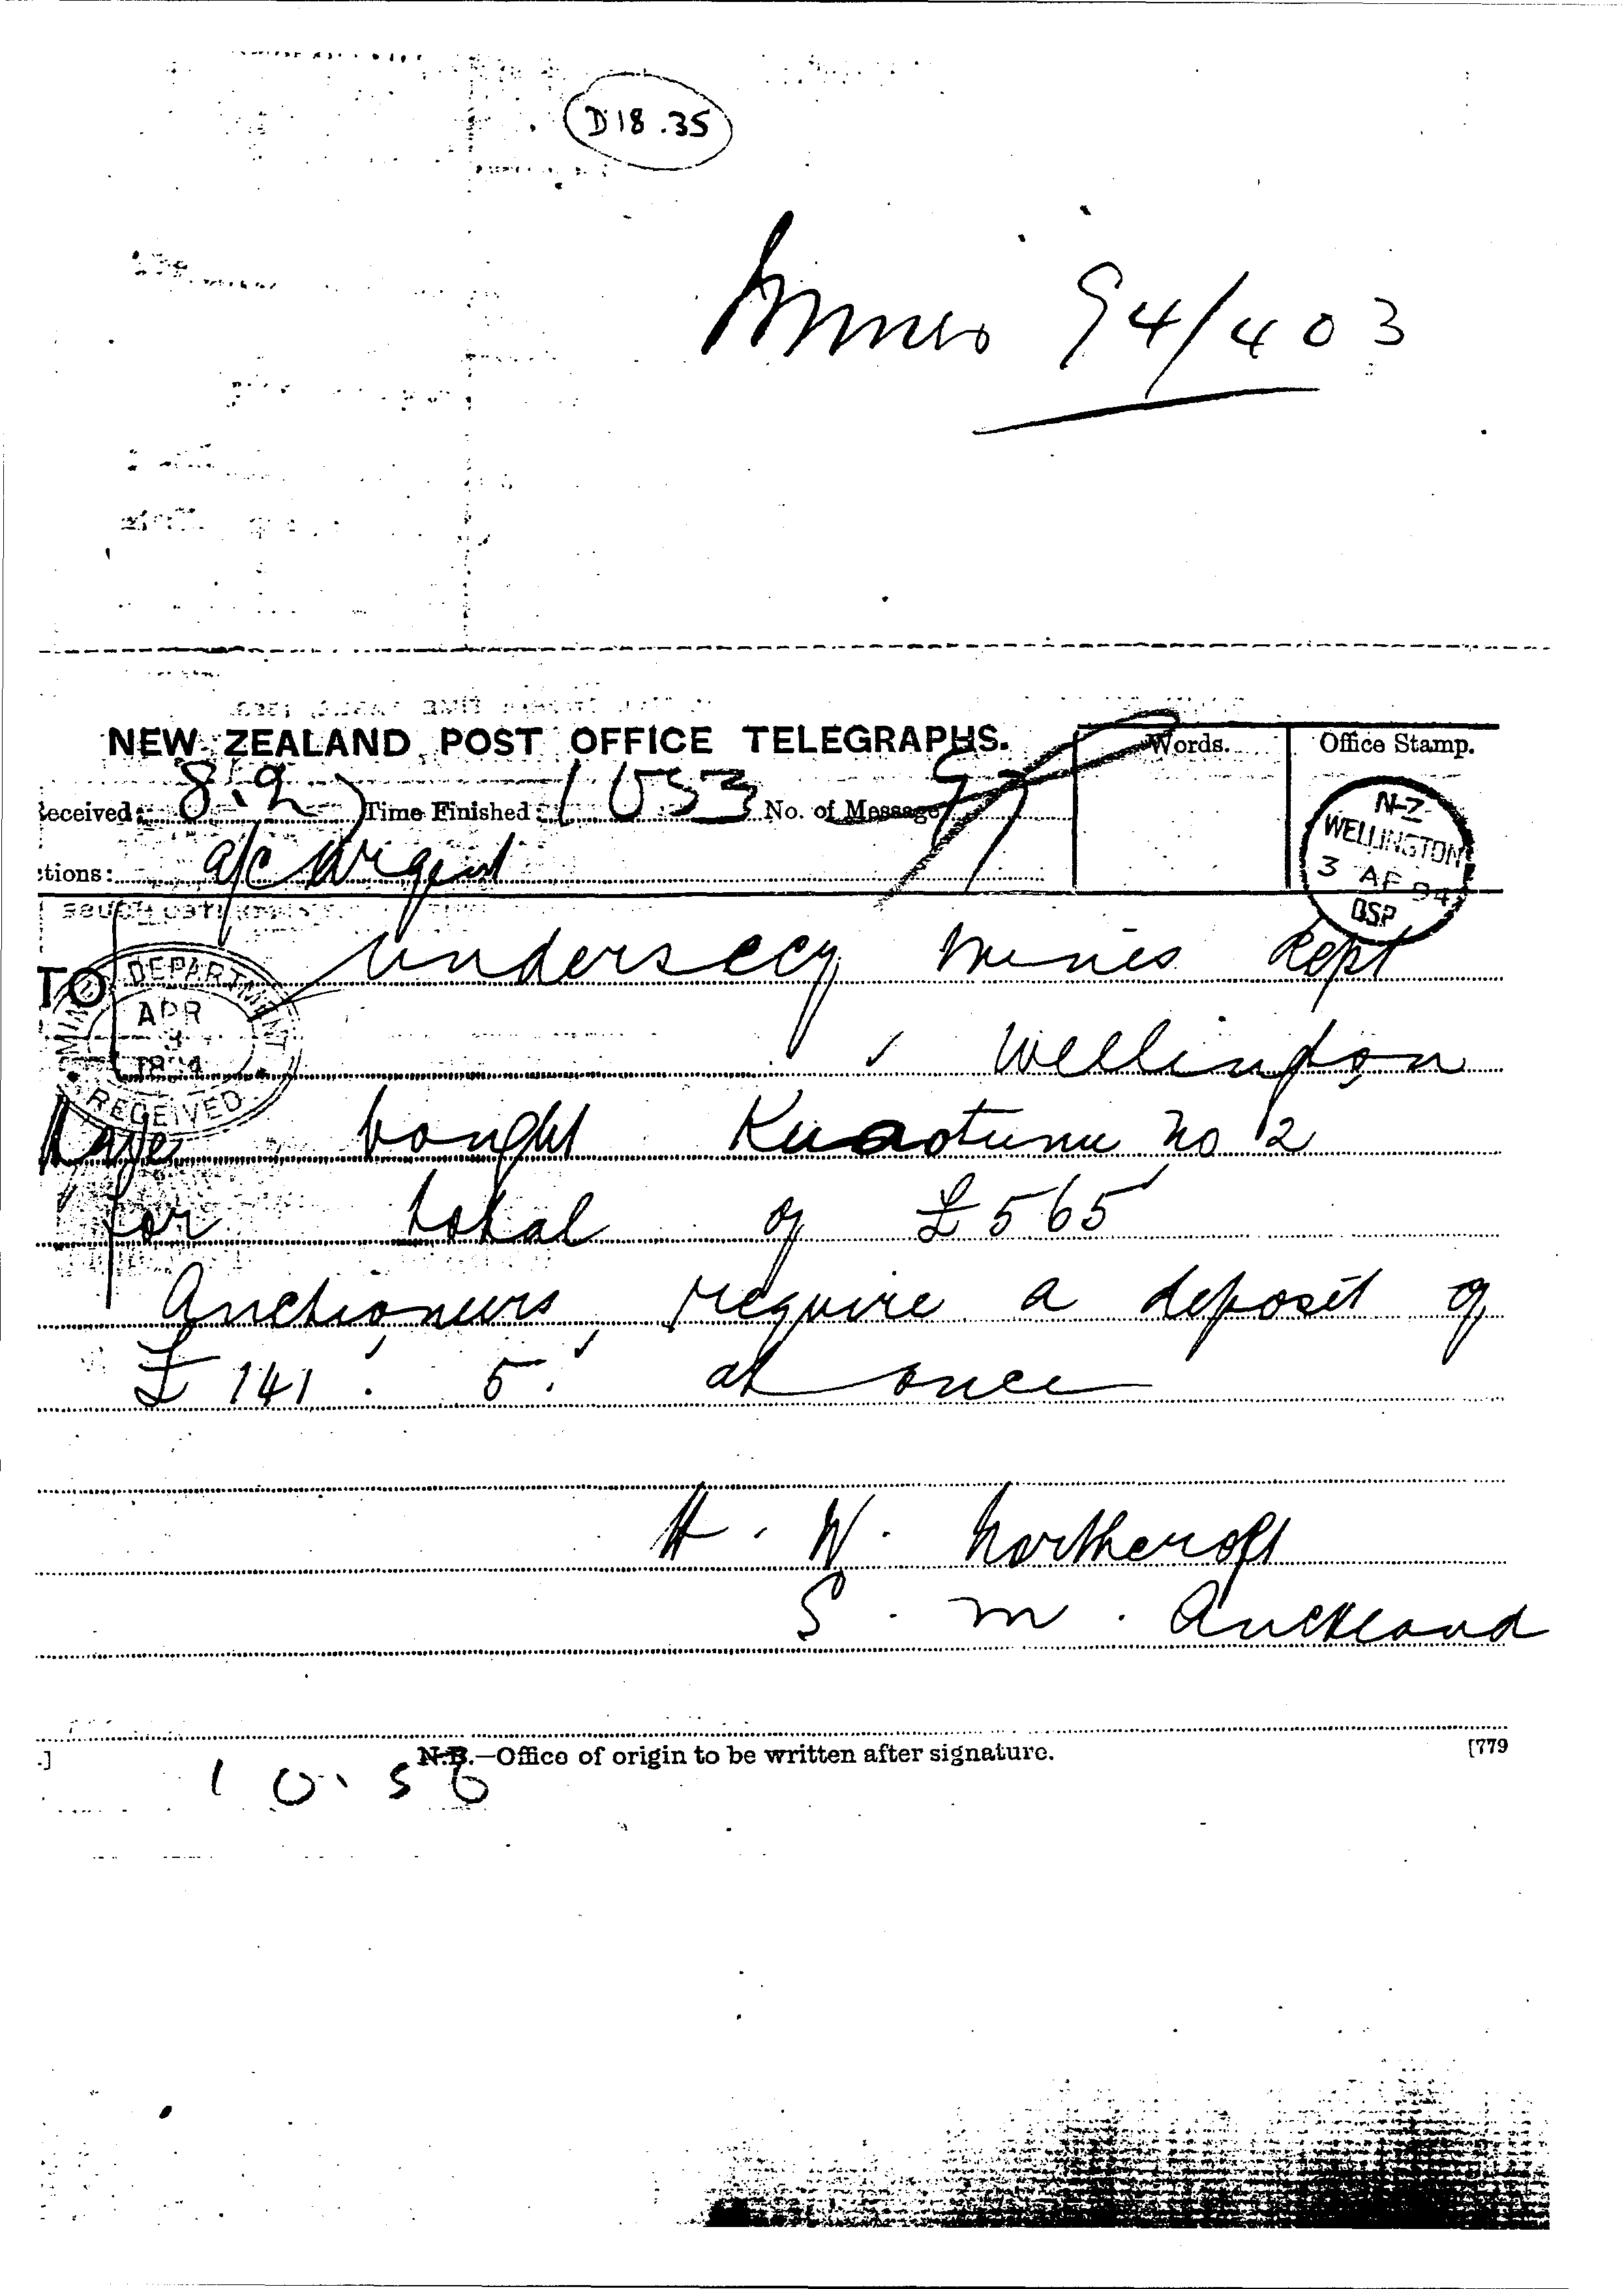 D18.35
Mines 94/403
NEW ZEALAND POST OFFICE TELEGRAPHS.
Words.
Office Stamp.
Received: Time Finished: 1053 No. of Message
N-Z
WELLINGTON
3 AP 94
tions: a/c Urgent
TO Undersecy Mines Dept
MINES DEPARTMENT
APR
3
1894
RECEIVED
Wellington
Have bought Kuaotunu No 2
for total of £565
Auctioneers require a deposit of
£141. 5. at once
H. W. Northcroft
S. M. Auckland
.] N.B.—Office of origin to be written after signature. [779
10.56